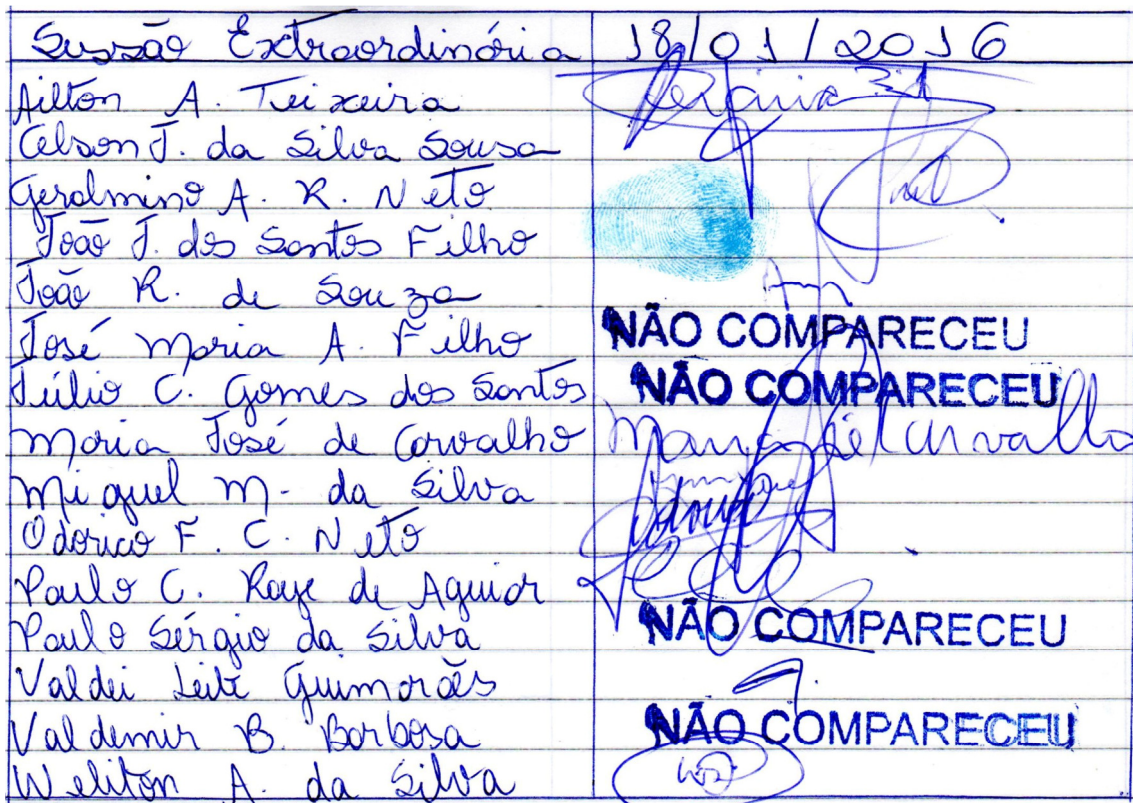 Sessão Extraordinária 18/01/2016
Ailton A. Teixeira
Celson J. da Silva Sousa
Geralmino A. R. Neto
João J. dos Santos Filho
João R. de Souza
José Maria A. Filho NÃO COMPARECEU
Júlio C. Gomes dos Santos NÃO COMPARECEU
Maria José de Carvalho Maria José Carvalho
Miguel M. da Silva
Odorico F. C. Neto
Paulo C. Raye de Aguiar
Paulo Sérgio da Silva NÃO COMPARECEU
Valdei Leite Guimarães
Valdemir B. Barbosa NÃO COMPARECEU
Weliton A. da Silva